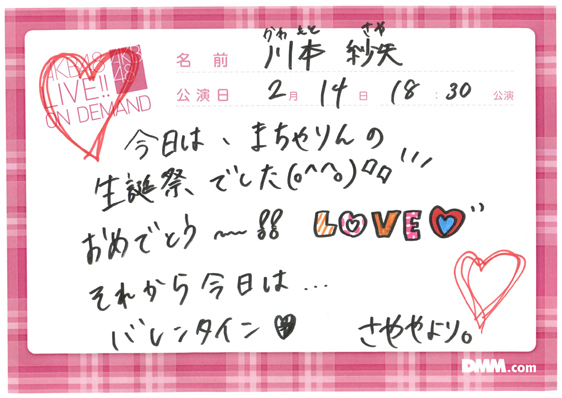 AKB48
LIVE!!
ON DEMAND
AKB
48
かわ もと さや
名前 川本 紗矢
公演日 2月 14日 18:30 公演
今日は、まちゃりんの
生誕祭でした(。^^。)ﾛﾛ
おめでとう〜!! LOVE
それから今日は…
バレンタイン♥ さややより。
DMM.com